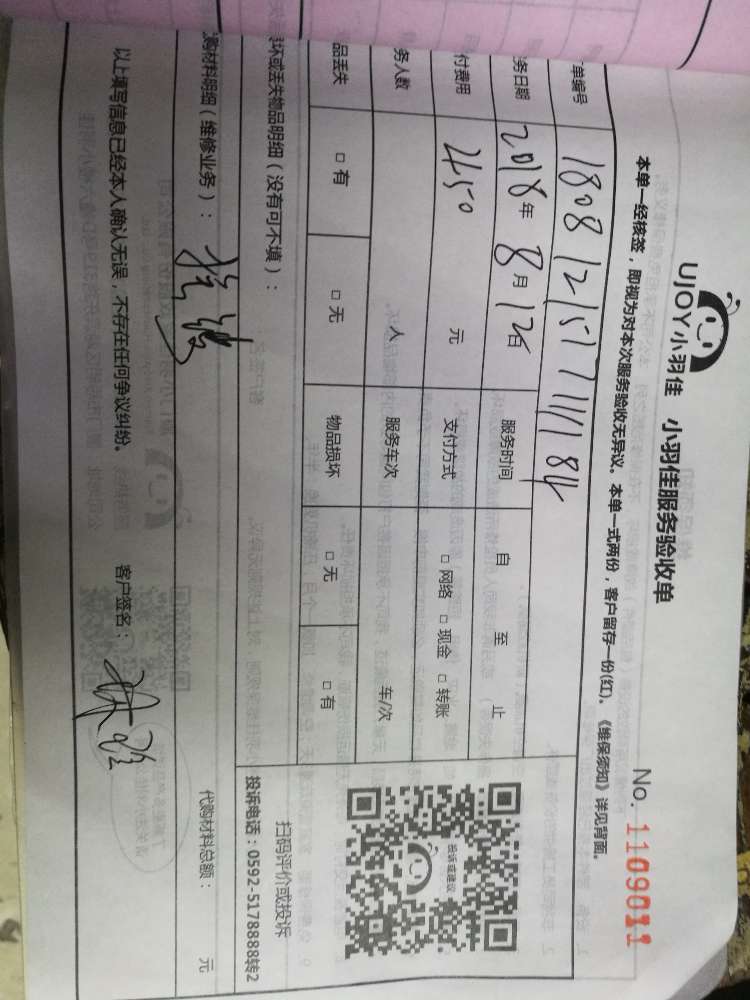 UJOY小羽佳 小羽佳服务验收单 No. 1109011
本单一经核签，即视为对本次服务验收无异议。本单一式两份，客户留存一份(红)。《维保须知》详见背面。
单编号 180812151711184
务日期 2018年8月12日 服务时间 自 至 止
付费用 450 元 支付方式 □网络 □现金 □转账
务人数 人 服务车次 车/次
品丢失 □有 □无 物品损坏 □无 □有
坏或丢失物品明细（没有可不填）：
购材料明细（维修业务）： 代购材料总额： 元
以上填写信息已经本人确认无误，不存在任何争议纠纷。 客户签名：
投诉或建议
扫码评价或投诉
投诉电话：0592-5178888转2